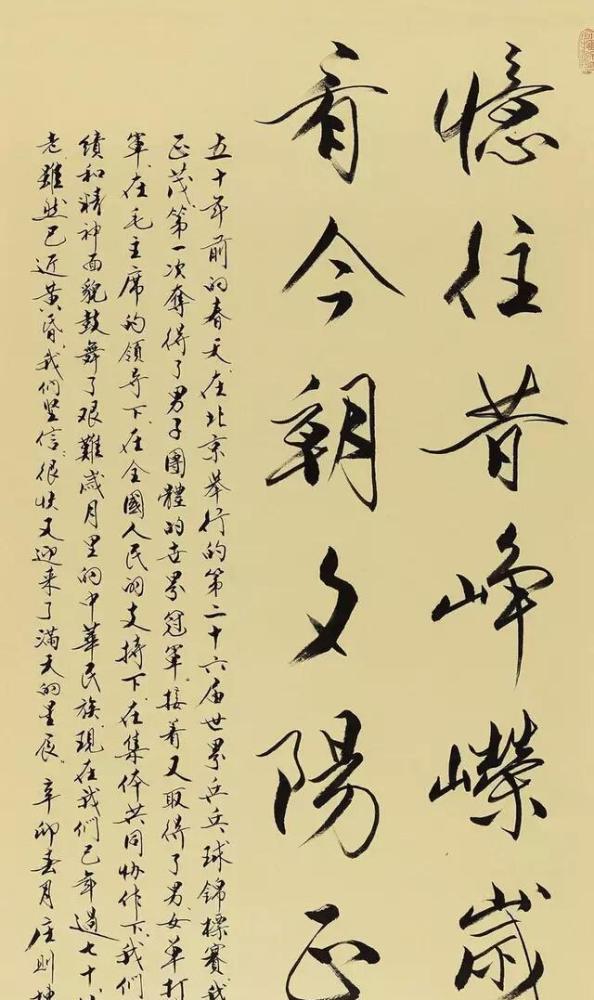 憶往昔峥嶸歲
看今朝夕陽正
五十年前的春天在北京举行的第二十六届世界乒乓球錦標賽我
正茂第一次奪得了男子團體的世界冠軍接着又取得了男女单打
軍在毛主席的领导下在全國人民的支持下在集体共同协作下我们
績和精神面貌鼓舞了艰難歲月里的中華民族現在我們已年過七十
老雖然已近黄昏我们坚信很快又迎来了滿天的星辰辛卯春月庄则